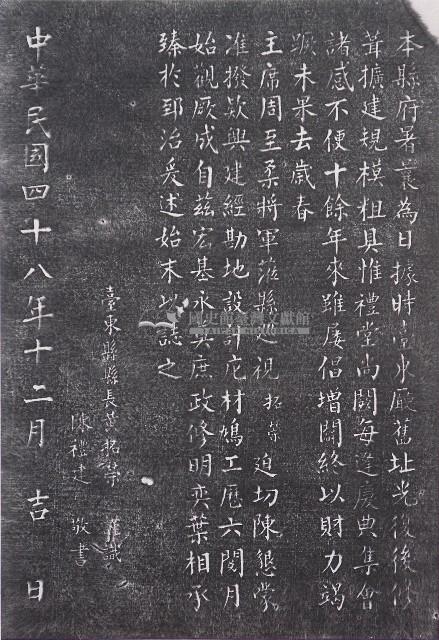 本縣府署曩為日據時臺東廳舊址光復後修
葺擴建規模粗具惟禮堂尚闕每逢慶典集會
諸感不便十餘年來雖屢倡增闢終以財力竭
蹶未果去歲春
主席周至柔將軍蒞縣巡視拓榮迫切陳懇蒙
准撥款興建經勘地設計庀材鳩工歷六閱月
始觀厥成自茲宏基永奠庶政修明奕葉相承
臻於郅治爰述始末以誌之
臺東縣縣長黃拓榮 謹識
陳禮建 敬書
中華民國四十八年十二月 吉 日
國史館臺灣文獻館
TAIWAN HISTORICA